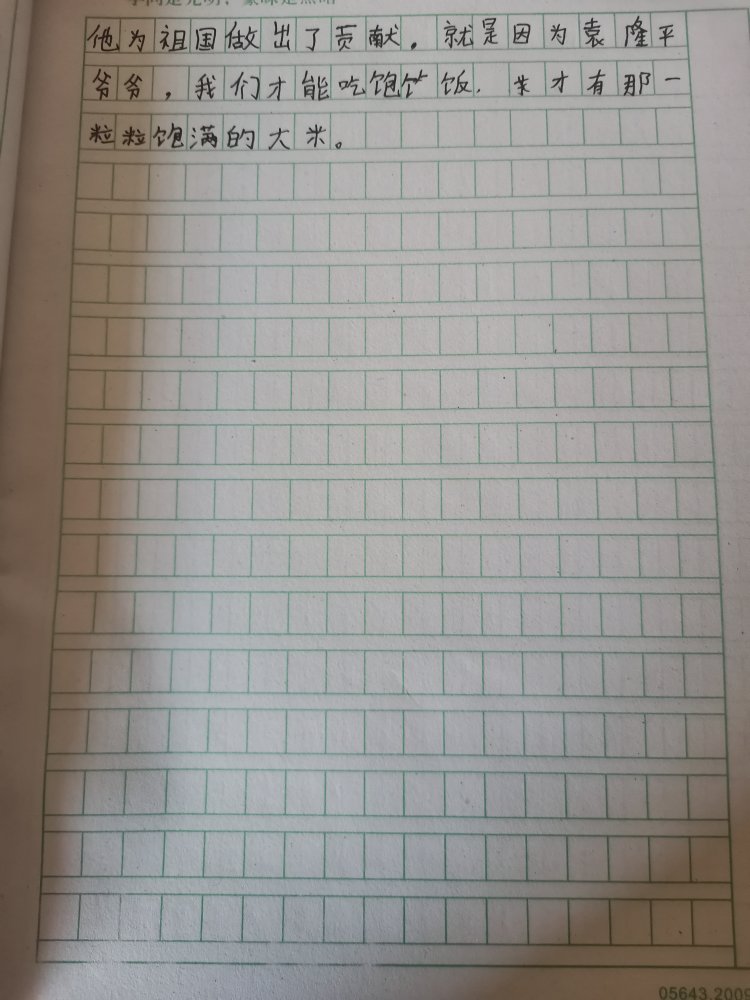 他为祖国做出了贡献。就是因为袁隆平
爷爷，我们才能吃饱饭．才有那一
粒粒饱满的大米。
05643.2009